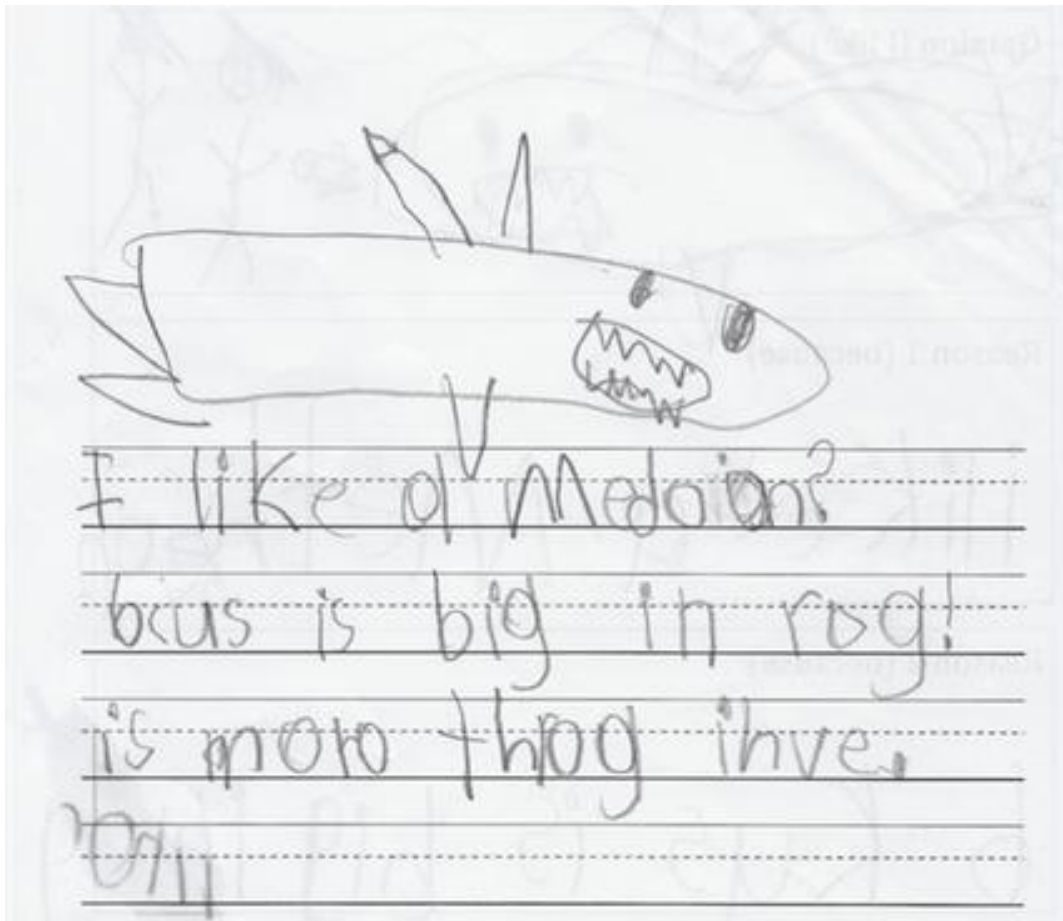 I like a Medoian?
bcus is big in rog!
is moro thog ihve.